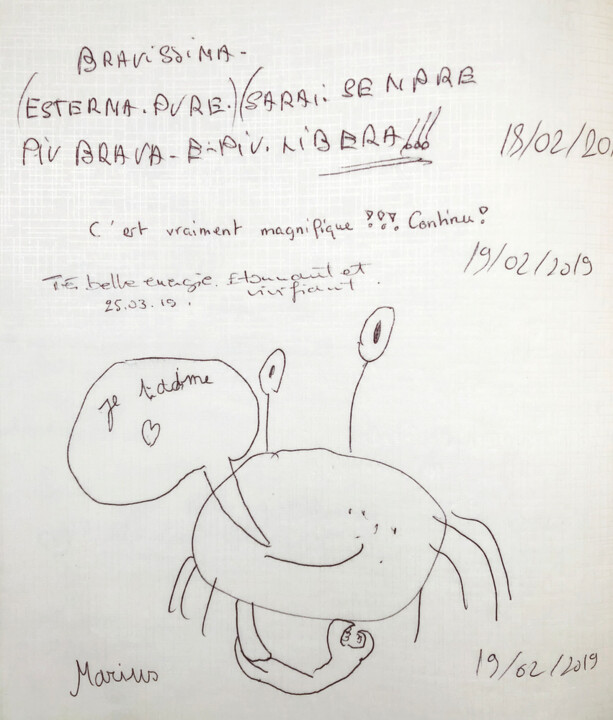 BRAVISSIMA-
(ESTERNA.PURE.)(SARAI: SEMPRE
PIU BRAVA-E-PIU.LIBERA!!!
18/02/20
C'est vraiment magnifique !!! Continu!
19/02/2019
TB. belle energie. Etonnant et
vivifiant.
25.03.19.
je t'adore
Marius
19/02/2019